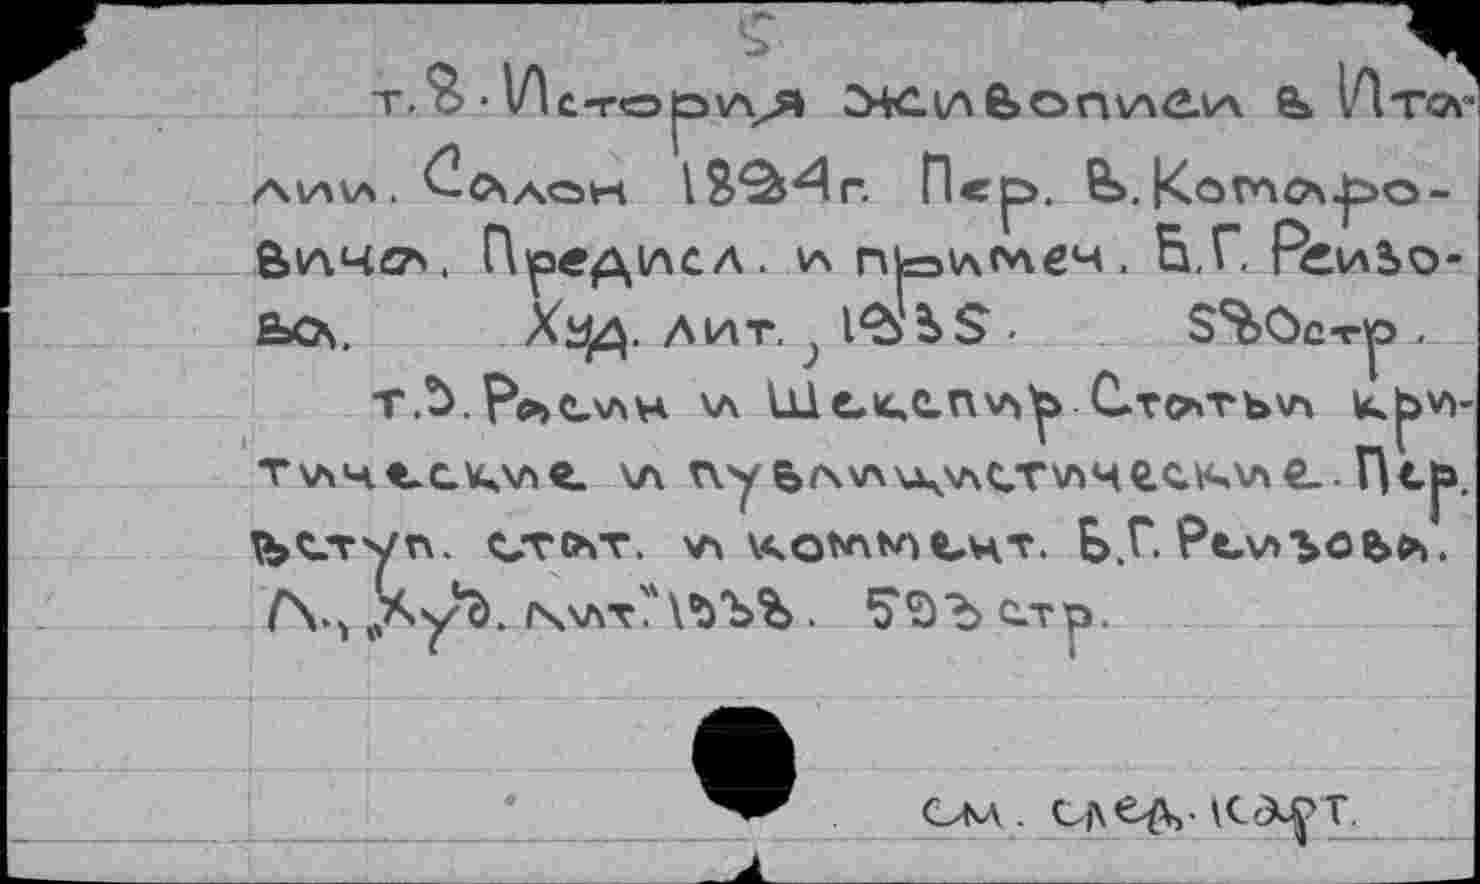 5
т.8. История живописи в Ита-
лии. Салон 1824г. Пер. В. Комаро-
вича. Предисл. и примеч. Б.Г. Реизо-
ва. Худ. лит., 1935. 580стр.
т.9. Расин и Шекспир. Статьи кри-
тические и публицистические. Пер.
вступ. стат. и коммент. Б.Г. Реизова.
Л., „Худ. лит." 1938. 593 стр.
см. след. карт.